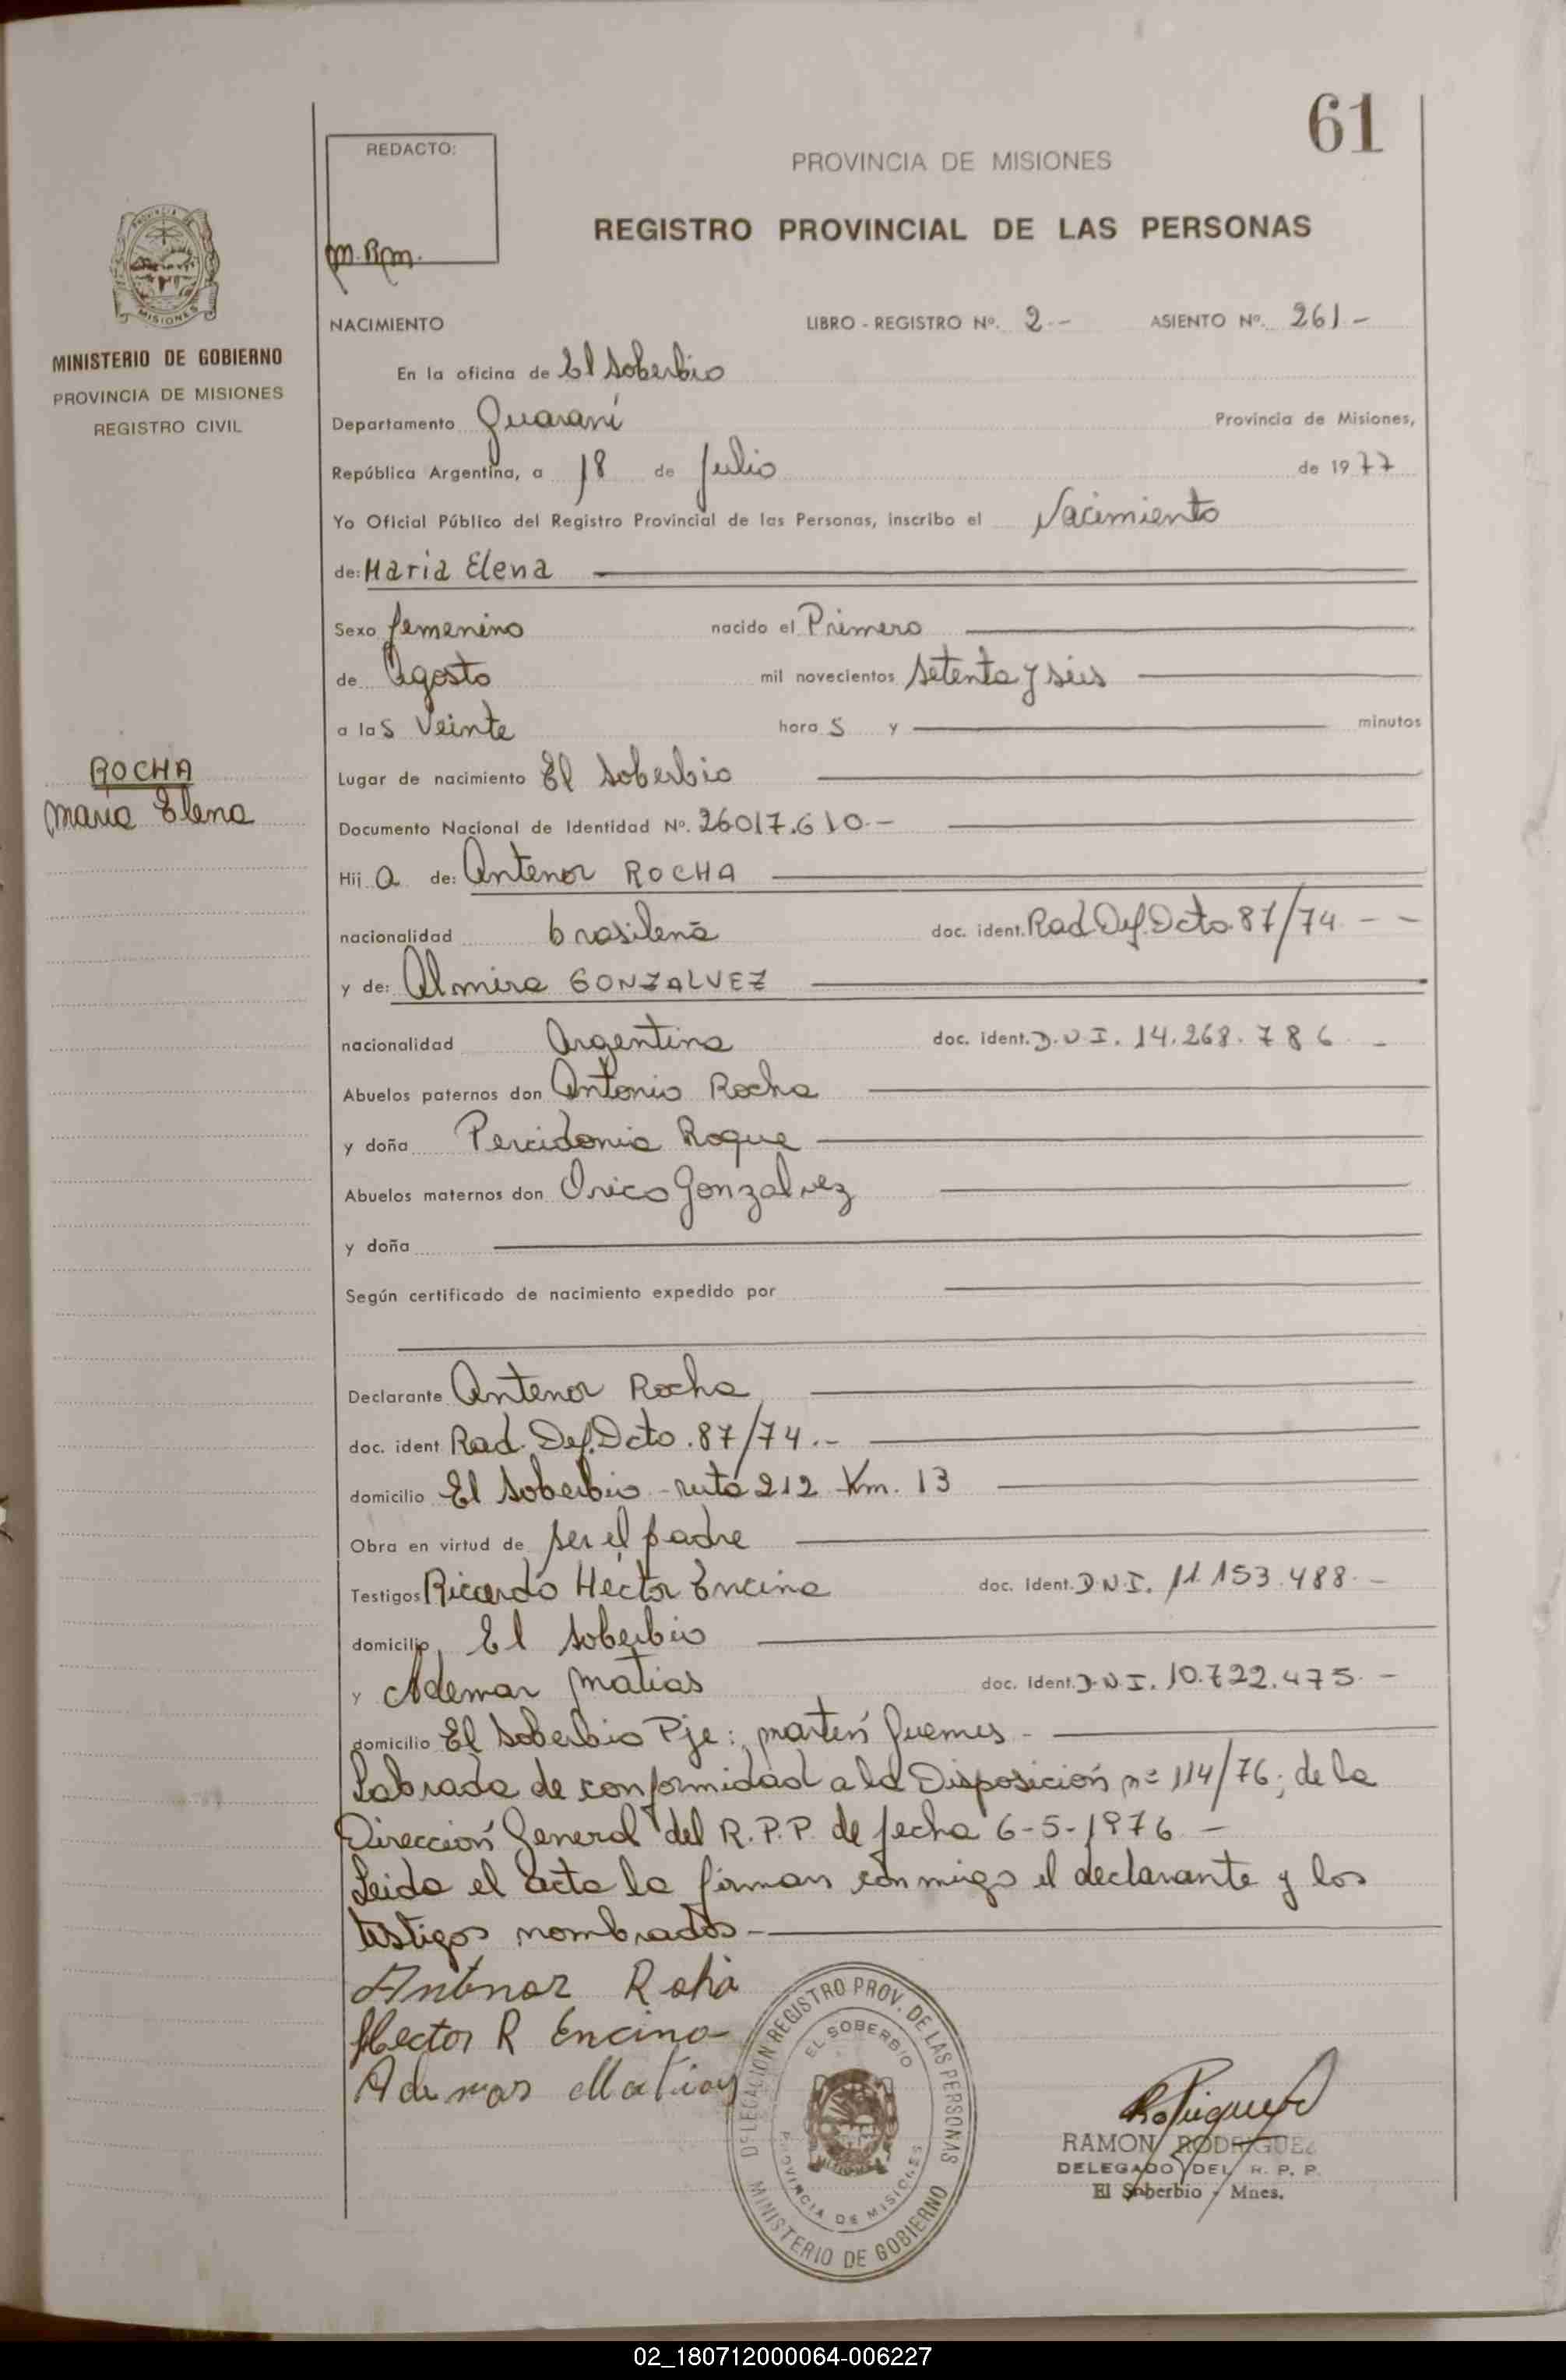 61
REDACTO:
M. Rm.
PROVINCIA DE MISIONES
REGISTRO PROVINCIAL DE LAS PERSONAS
MISIONES
MINISTERIO DE GOBIERNO
PROVINCIA DE MISIONES
REGISTRO CIVIL
ROCHA
Maria Elena
NACIMIENTO LIBRO - REGISTRO Nº. 2.- ASIENTO Nº. 261.-
En la oficina de El Soberbio
Departamento Guaraní Provincia de Misiones,
República Argentina, a 18 de Julio de 1977
Yo Oficial Público del Registro Provincial de las Personas, inscribo el Nacimiento
de: Maria Elena
Sexo femenino nacido el Primero
de Agosto mil novecientos setenta y seis
a las Veinte horas y minutos
Lugar de nacimiento El Soberbio
Documento Nacional de Identidad Nº. 26017.610.-
Hija de: Antenor ROCHA
nacionalidad brasilena doc. ident. Rad. Def. Dcto. 87/74 - -
y de: Almira GONZALVEZ
nacionalidad Argentina doc. ident. D.N.I. 14.268.786 -
Abuelos paternos don Antonio Rocha
y doña Percidonia Roque
Abuelos maternos don Orico Gonzalvez
y doña
Según certificado de nacimiento expedido por
Declarante Antenor Rocha
doc. ident Rad. Def. Dcto. 87/74.-
domicilio El Soberbio - ruta 212 Km. 13
Obra en virtud de ser el padre
Testigos Ricardo Héctor Encina doc. ident. D.N.I. 11.153.488.-
domicilio El Soberbio
y Ademar Matias doc. ident. D.N.I. 10.722.475.-
domicilio El Soberbio Pje: Martín Guemes -
Labrada de conformidad a la Disposición nº 114/76; de la
Dirección General del R.P.P. de fecha 6-5-1976 -
Leida el acta la firman conmigo el declarante y los
testigos nombrados -
Antenor Roha
Hector R Encina
Ademar Matias
DELEGACION REGISTRO PROV. DE LAS PERSONAS
EL SOBERBIO
PROVINCIA DE MISIONES
MINISTERIO DE GOBIERNO
RAMON RODRIGUEZ
DELEGADO DEL R. P. P.
El Soberbio - Mnes.
02_180712000064-006227